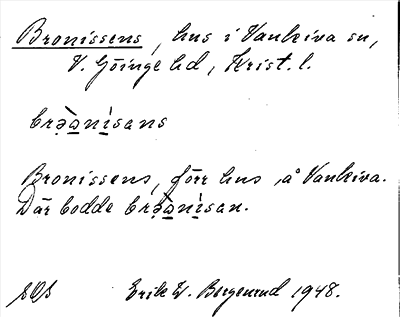 Bronissens, hus i Vankiva sn,
V. Göinge hd, Krist. l.
brə̣̀a̱ni̱sans
Bronissens, förr hus å Vankiva.
Där bodde brə̣̀a̱ni̱san.
Erik W. Bergenrud 1948.